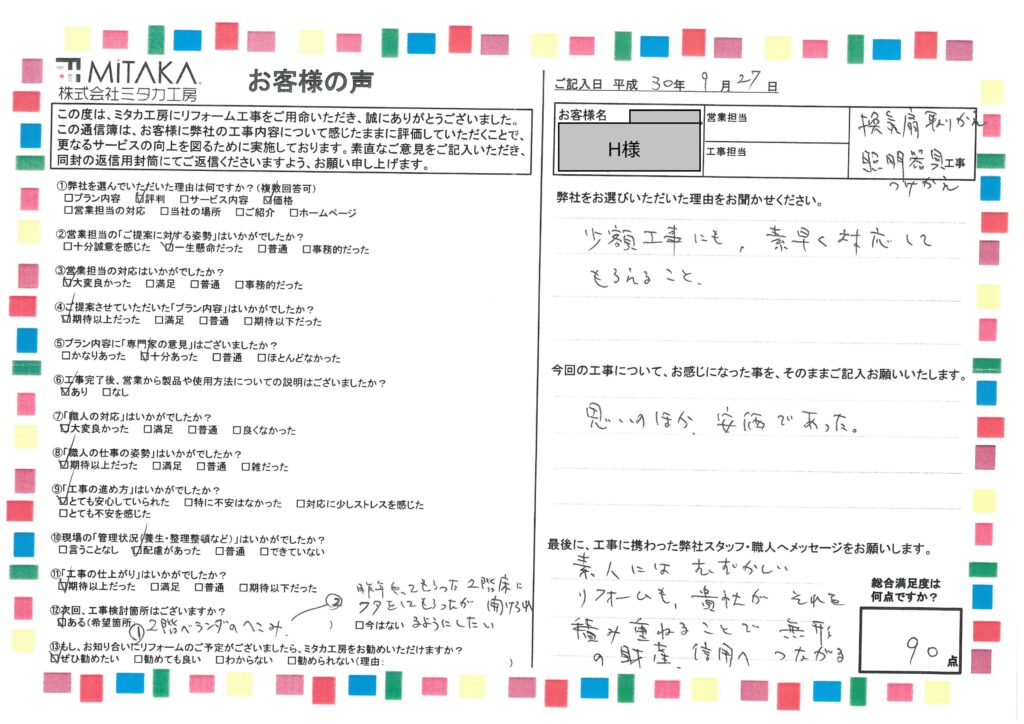 MiTAKA
株式会社ミタカ工房
お客様の声
この度は、ミタカ工房にリフォーム工事をご用命いただき、誠にありがとうございました。
この通信簿は、お客様に弊社の工事内容について感じたままに評価していただくことで、
更なるサービスの向上を図るために実施しております。素直なご意見をご記入いただき、
同封の返信用封筒にてご返信くださいますよう、お願い申し上げます。
①弊社を選んでいただいた理由は何ですか?(複数回答可)
□プラン内容 ☑評判 □サービス内容 ☑価格
□営業担当の対応 □当社の場所 □ご紹介 □ホームページ
②営業担当の「ご提案に対する姿勢」はいかがでしたか?
□十分誠意を感じた ☑一生懸命だった □普通 □事務的だった
③営業担当の対応はいかがでしたか?
☑大変良かった □満足 □普通 □事務的だった
④ご提案させていただいた「プラン内容」はいかがでしたか?
☑期待以上だった □満足 □普通 □期待以下だった
⑤プラン内容に「専門家の意見」はございましたか?
□かなりあった ☑十分あった □普通 □ほとんどなかった
⑥工事完了後、営業から製品や使用方法についての説明はございましたか?
☑あり □なし
⑦「職人の対応」はいかがでしたか?
☑大変良かった □満足 □普通 □良くなかった
⑧「職人の仕事の姿勢」はいかがでしたか?
☑期待以上だった □満足 □普通 □雑だった
⑨「工事の進め方」はいかがでしたか?
☑とても安心していられた □特に不安はなかった □対応に少しストレスを感じた
□とても不安を感じた
⑩現場の「管理状況(養生・整理整頓など)」はいかがでしたか?
□言うことなし ☑配慮があった □普通 □できていない
⑪「工事の仕上がり」はいかがでしたか?
☑期待以上だった □満足 □普通 □期待以下だった
⑫次回、工事検討箇所はございますか?
☑ある(希望箇所 ①2階ベランダのへこみ. ) □今はない
②昨年やってもらった2階床に
フタをしてもらったが 開けられ
るようにしたい
⑬もし、お知り合いにリフォームのご予定がございましたら、ミタカ工房をお勧めいただけますか?
☑ぜひ勧めたい □勧めても良い □わからない □勧められない(理由: )
ご記入日 平成 30年 9月 27日
お客様名
H様
営業担当
工事担当
換気扇取りかえ
照明器具工事
つけかえ
弊社をお選びいただいた理由をお聞かせください。
少額工事にも、素早く対応して
もらえること.
今回の工事について、お感じになった事を、そのままご記入お願いいたします。
思いのほか、安価であった。
最後に、工事に携わった弊社スタッフ・職人へメッセージをお願いします。
素人にはむずかしい
リフォームも、貴社が それを
積み重ねることで 無形
の財産、信用へ つながる
総合満足度は
何点ですか?
90点